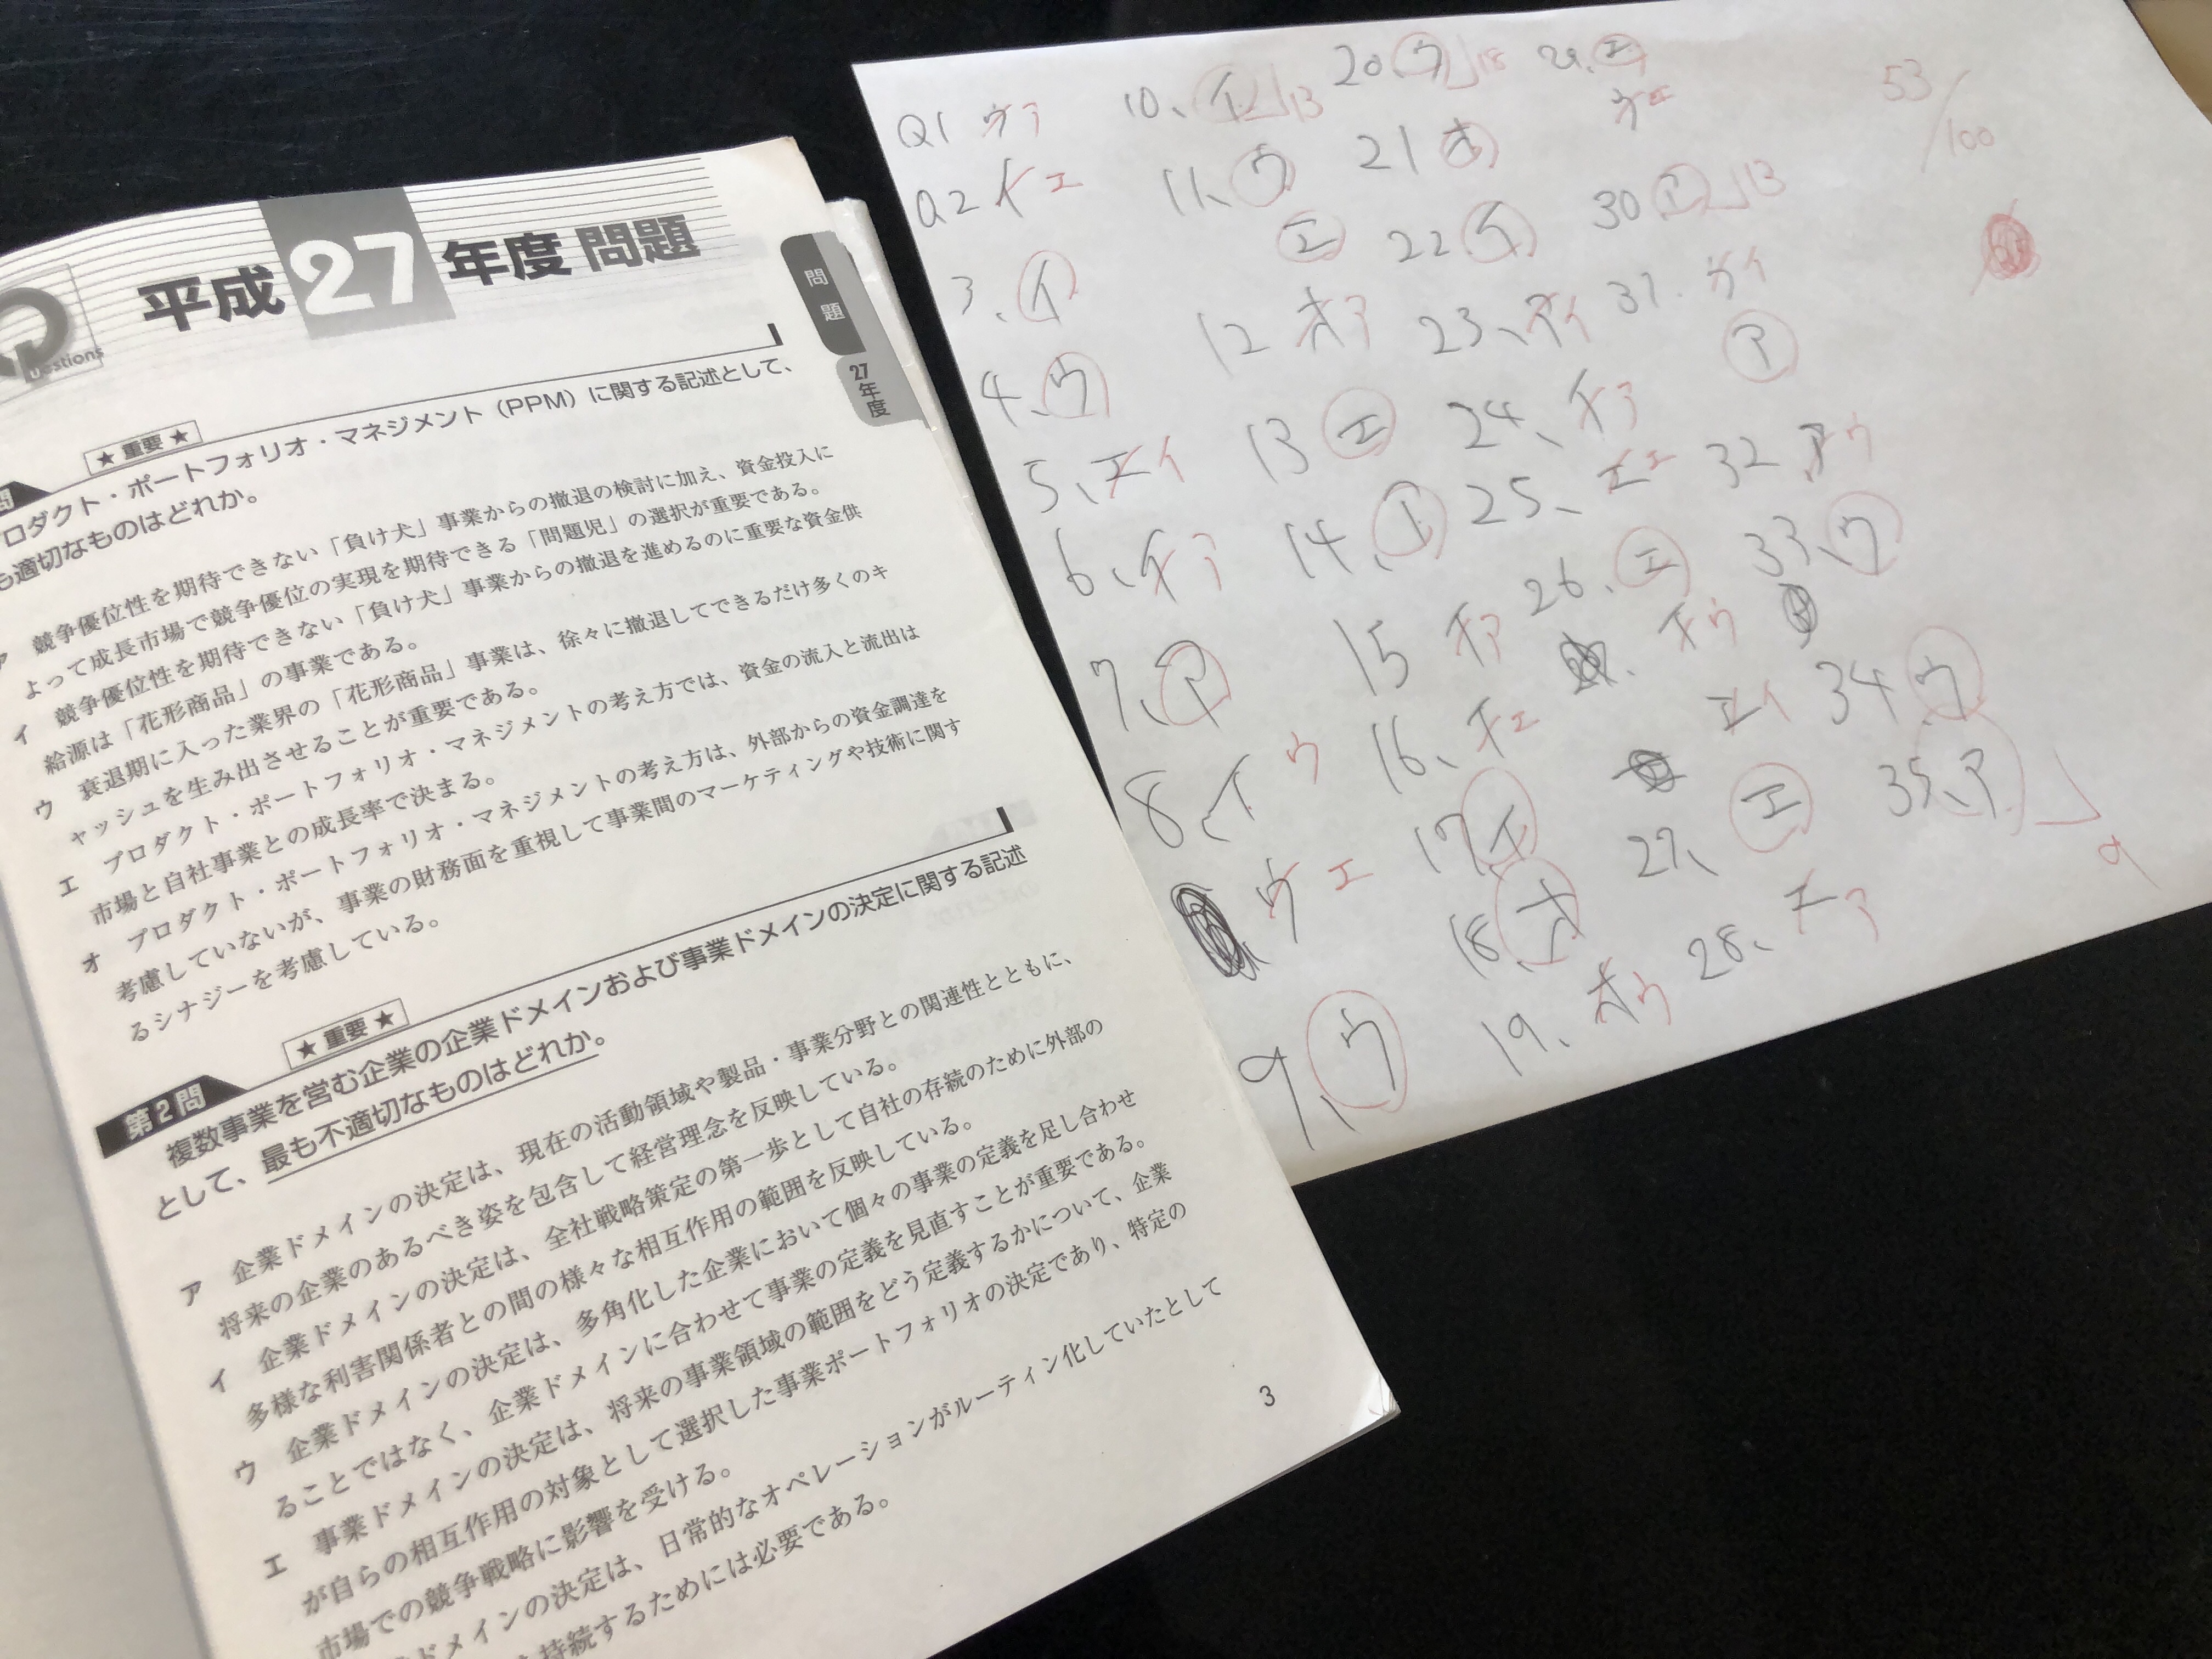 Questions
平成27年度 問題
問題
27年度
問
★重要★
ロダクト・ポートフォリオ・マネジメント（PPM）に関する記述として、
も適切なものはどれか。
ア 競争優位性を期待できない「負け犬」事業からの撤退の検討に加え、資金投入に
よって成長市場で競争優位の実現を期待できる「問題児」の選択が重要である。
イ 競争優位性を期待できない「負け犬」事業からの撤退を進めるのに重要な資金供
給源は「花形商品」の事業である。
ウ 衰退期に入った業界の「花形商品」事業は、徐々に撤退してできるだけ多くのキ
ャッシュを生み出させることが重要である。
エ プロダクト・ポートフォリオ・マネジメントの考え方では、資金の流入と流出は
市場と自社事業との成長率で決まる。
オ プロダクト・ポートフォリオ・マネジメントの考え方は、外部からの資金調達を
考慮していないが、事業の財務面を重視して事業間のマーケティングや技術に関す
るシナジーを考慮している。
第2問
★重要★
複数事業を営む企業の企業ドメインおよび事業ドメインの決定に関する記述
として、最も不適切なものはどれか。
ア 企業ドメインの決定は、現在の活動領域や製品・事業分野との関連性とともに、
将来の企業のあるべき姿を包含して経営理念を反映している。
イ 企業ドメインの決定は、全社戦略策定の第一歩として自社の存続のために外部の
多様な利害関係者との間の様々な相互作用の範囲を反映している。
ウ 企業ドメインの決定は、多角化した企業において個々の事業の定義を足し合わせ
ることではなく、企業ドメインに合わせて事業の定義を見直すことが重要である。
エ 事業ドメインの決定は、将来の事業領域の範囲をどう定義するかについて、企業
が自らの相互作用の対象として選択した事業ポートフォリオの決定であり、特定の
市場での競争戦略に影響を受ける。
ドメインの決定は、日常的なオペレーションがルーティン化していたとして
持続するためには必要である。
3
Q1 ウ ア
Q2 イ エ
3、イ
4、ウ
5、エ イ
6、イ ア
7、ア
8、イ ウ
ウ エ
9、ウ
10、イ 13
11、ウ
エ
12 オ ア
13 エ
14、エ
15 イ ア
16、イ エ
17 イ
18、オ
19、オ ウ
20、ウ 15
21 オ
22 イ
23、ア イ
24、イ ア
25、エ
26、エ
イ ウ
エ イ
27、エ
28、エ ア
29、エ
ウ エ
30 ア 13
31. ウ イ
ア
32 ア ウ
33、ウ
34 ウ
35、ア
9
53/100